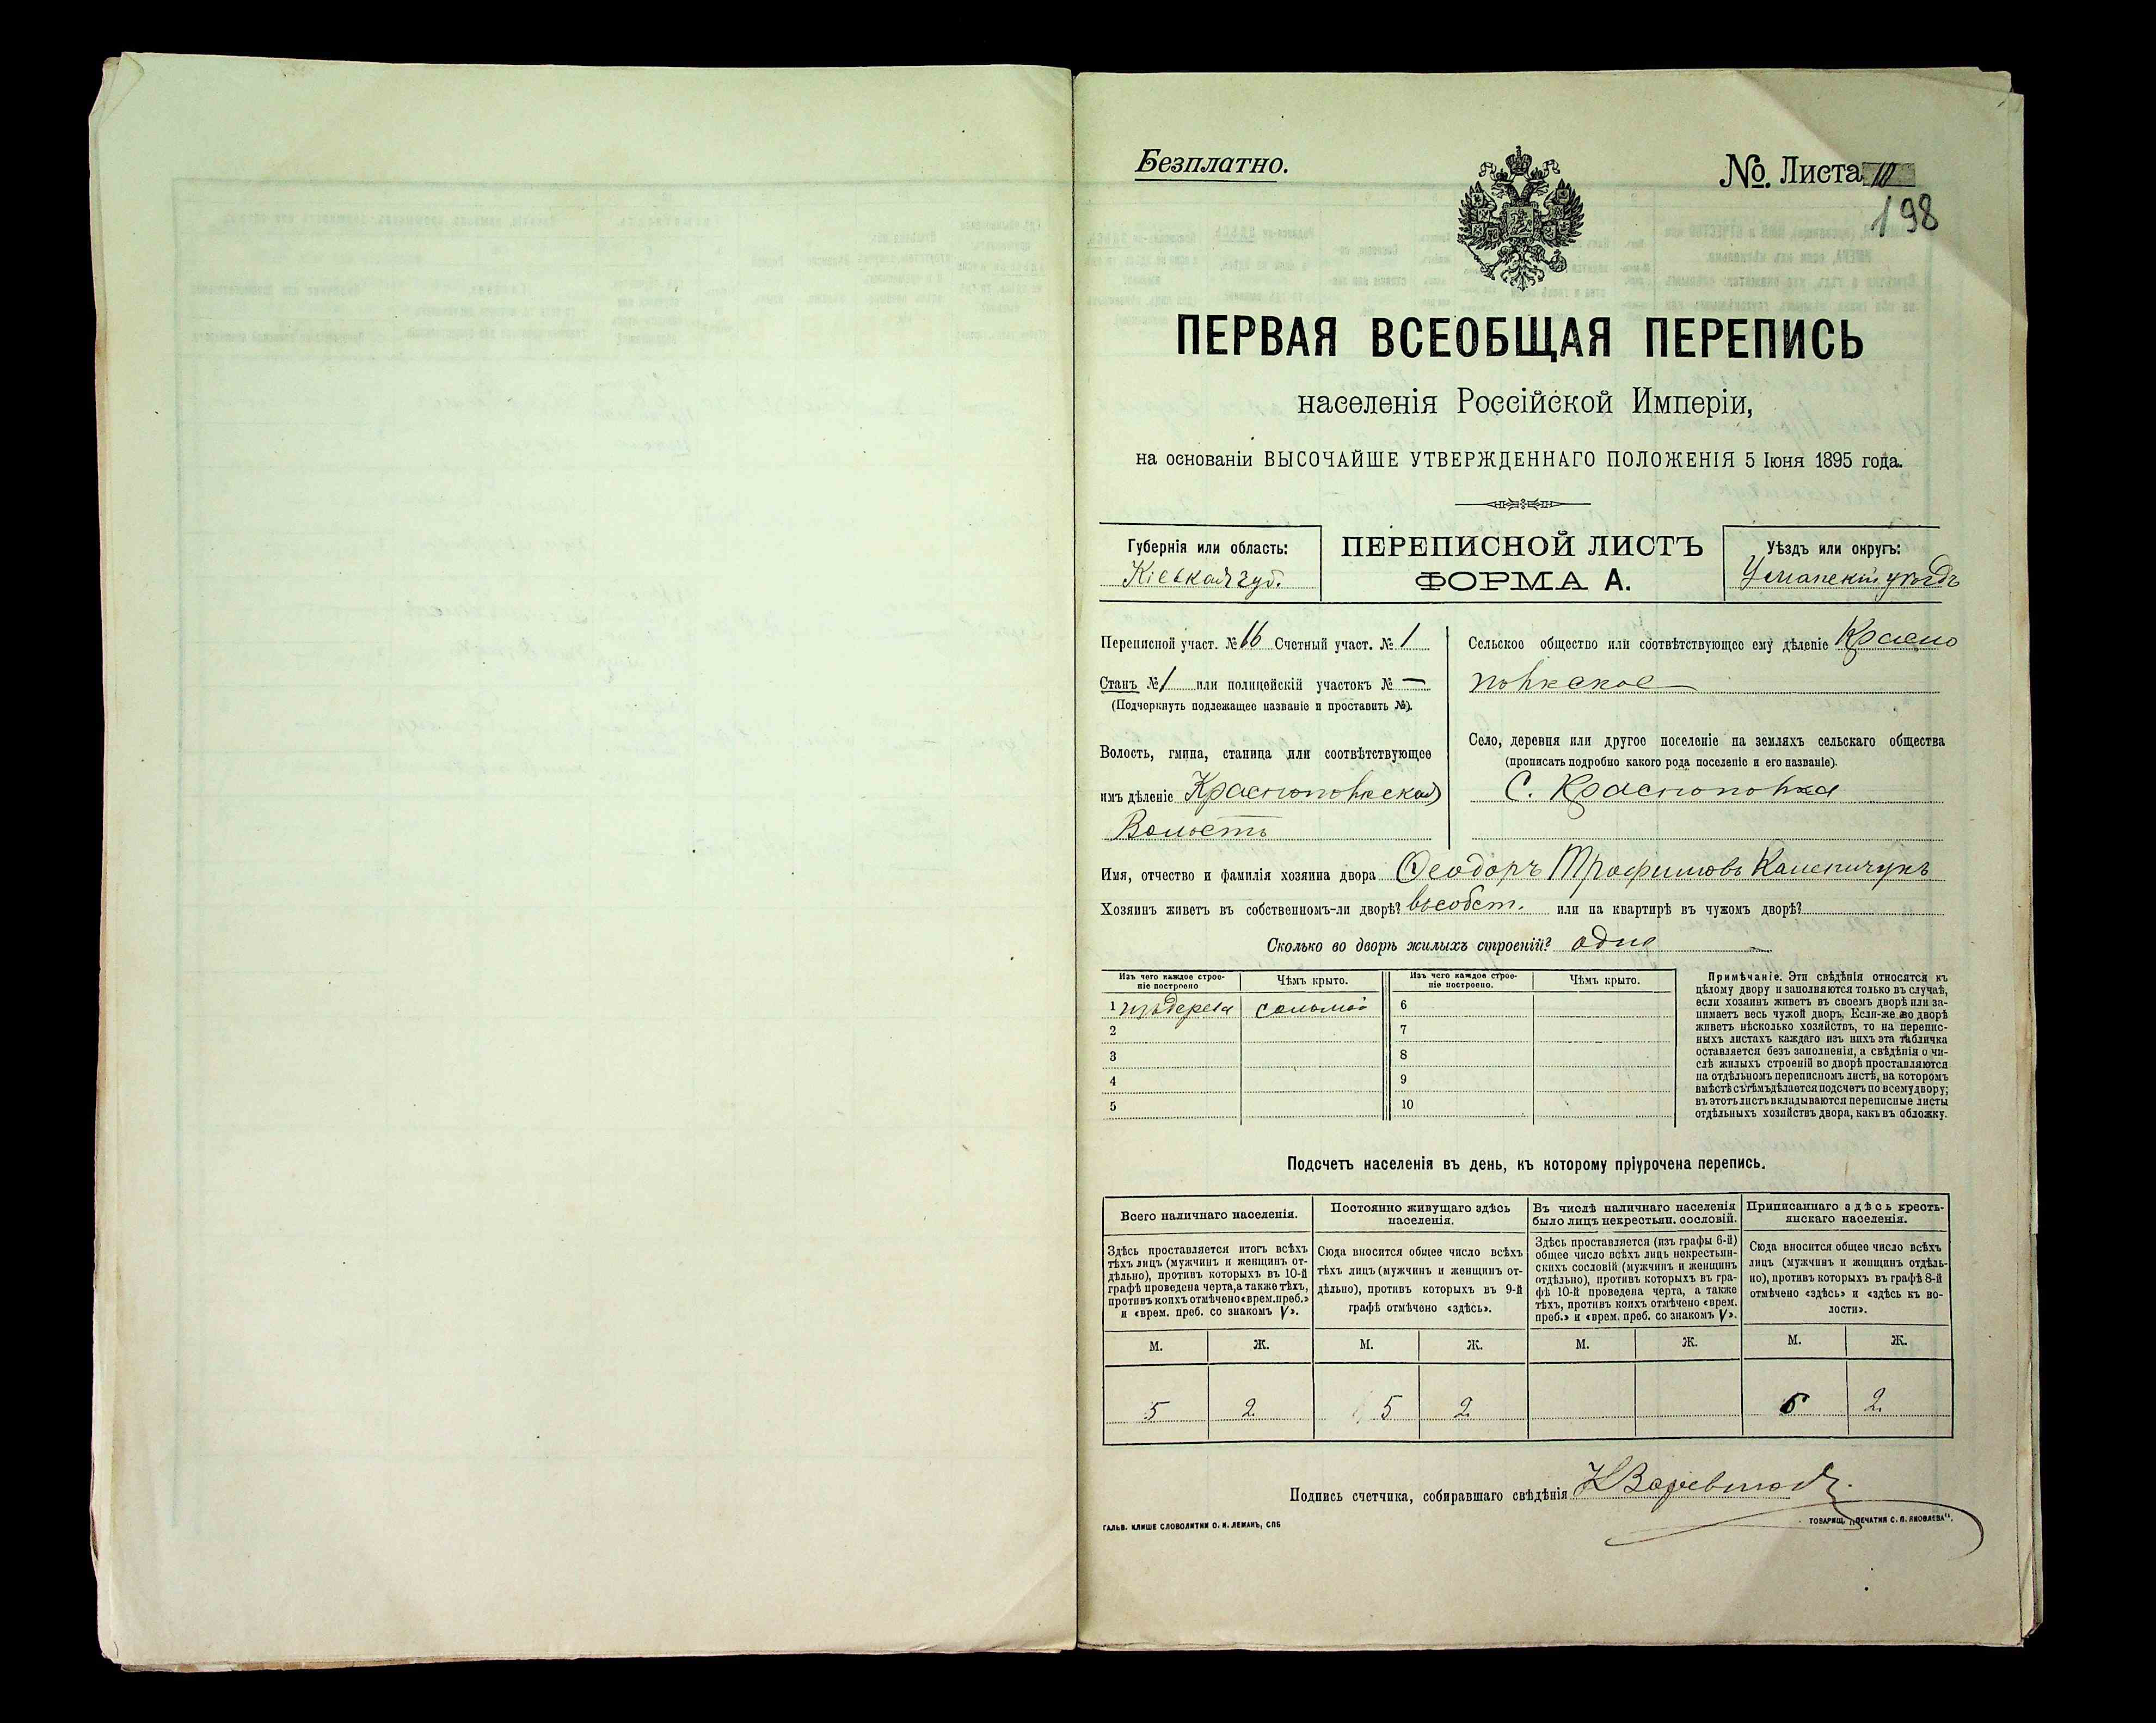 Безплатно.
№. Листа 10
198
ПЕРВАЯ ВСЕОБЩАЯ ПЕРЕПИСЬ
населенія Россійской Имперіи,
на основаніи ВЫСОЧАЙШЕ УТВЕРЖДЕННАГО ПОЛОЖЕНІЯ 5 Іюня 1895 года.
Губернія или область:
Кіевская губ.
ПЕРЕПИСНОЙ ЛИСТЪ
ФОРМА А.
Уѣздъ или округъ:
Уманскій уѣздъ
Переписной участ. № 16 Счетный участ. № 1
Станъ № 1 или полицейскій участокъ № —
(Подчеркнуть подлежащее названіе и проставить №).
Волость, гмина, станица или соотвѣтствующее
имъ дѣленіе Краснопольская
Волость
Сельское общество или соотвѣтствующее ему дѣленіе Красно
польское
Село, деревня или другое поселеніе на земляхъ сельскаго общества
(прописать подробно какого рода поселеніе и его названіе).
С. Краснополка
Имя, отчество и фамилія хозяина двора Ѳеодоръ Трофимовъ
Хозяинъ живетъ въ собственномъ-ли дворѣ? въ собст. или на квартирѣ въ чужомъ дворѣ?
Сколько во дворѣ жилыхъ строеній? одно
Изъ чего каждое строе-
ніе построено
Чѣмъ крыто.
Изъ чего каждое строе-
ніе построено.
Чѣмъ крыто.
1 изъ дерева соломой 6
2 7
3 8
4 9
5 10
Примѣчаніе. Эти свѣдѣнія относятся къ
цѣлому двору и заполняются только въ случаѣ,
если хозяинъ живетъ въ своемъ дворѣ или за-
нимаетъ весь чужой дворъ. Если-же во дворѣ
живетъ нѣсколько хозяйствъ, то на перепис-
ныхъ листахъ каждаго изъ нихъ эта табличка
оставляется безъ заполненія, а свѣдѣнія о чи-
слѣ жилыхъ строеній во дворѣ проставляются
на отдѣльномъ переписномъ листѣ, на которомъ
вмѣстѣ съ тѣмъ дѣлается подсчетъ по всему двору;
въ этотъ листъ вкладываются переписные листы
отдѣльныхъ хозяйствъ двора, какъ въ обложку.
Подсчетъ населенія въ день, къ которому пріурочена перепись.
Всего наличнаго населенія.
Здѣсь проставляется итогъ всѣхъ
тѣхъ лицъ (мужчинъ и женщинъ от-
дѣльно), противъ которыхъ въ 10-й
графѣ проведена черта, а также тѣхъ,
противъ коихъ отмѣчено «врем. преб.»
и «врем. преб. со знакомъ V».
Постоянно живущаго здѣсь
населенія.
Сюда вносится общее число всѣхъ
тѣхъ лицъ (мужчинъ и женщинъ от-
дѣльно), противъ которыхъ въ 9-й
графѣ отмѣчено «здѣсь».
Въ числѣ наличнаго населенія
было лицъ некрестьян. сословій.
Здѣсь проставляется (изъ графы 6-й)
общее число всѣхъ лицъ некрестьян-
скихъ сословій (мужчинъ и женщинъ
отдѣльно), противъ которыхъ въ гра-
фѣ 10-й проведена черта, а также
тѣхъ, противъ коихъ отмѣчено «врем.
преб.» и «врем. преб. со знакомъ V».
Приписаннаго здѣсь кресть-
янскаго населенія.
Сюда вносится общее число всѣхъ
лицъ (мужчинъ и женщинъ отдѣль-
но), противъ которыхъ въ графѣ 8-й
отмѣчено «здѣсь» и «здѣсь къ во-
лости».
М. Ж. М. Ж. М. Ж. М. Ж.
5 2 5 2 6 2
Подпись счетчика, собиравшаго свѣдѣнія
ГАЛЬВ. КЛИШЕ СЛОВОЛИТНИ О. И. ЛЕМАНЪ, СПБ
ТОВАРИЩ. „ПЕЧАТНЯ С. П. ЯКОВЛЕВА".